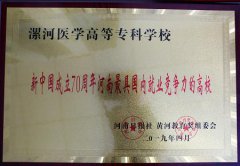 漯河医学高等专科学校
新中国成立70周年河南最具国内就业竞争力的高校
河南日报社 黄河教育奖组委会
二〇一九年四月